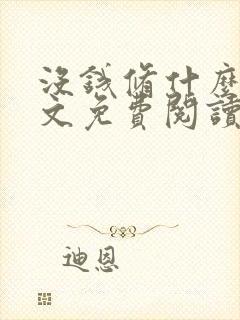 沒錢俢什麼
文免費閱讀
迪恩